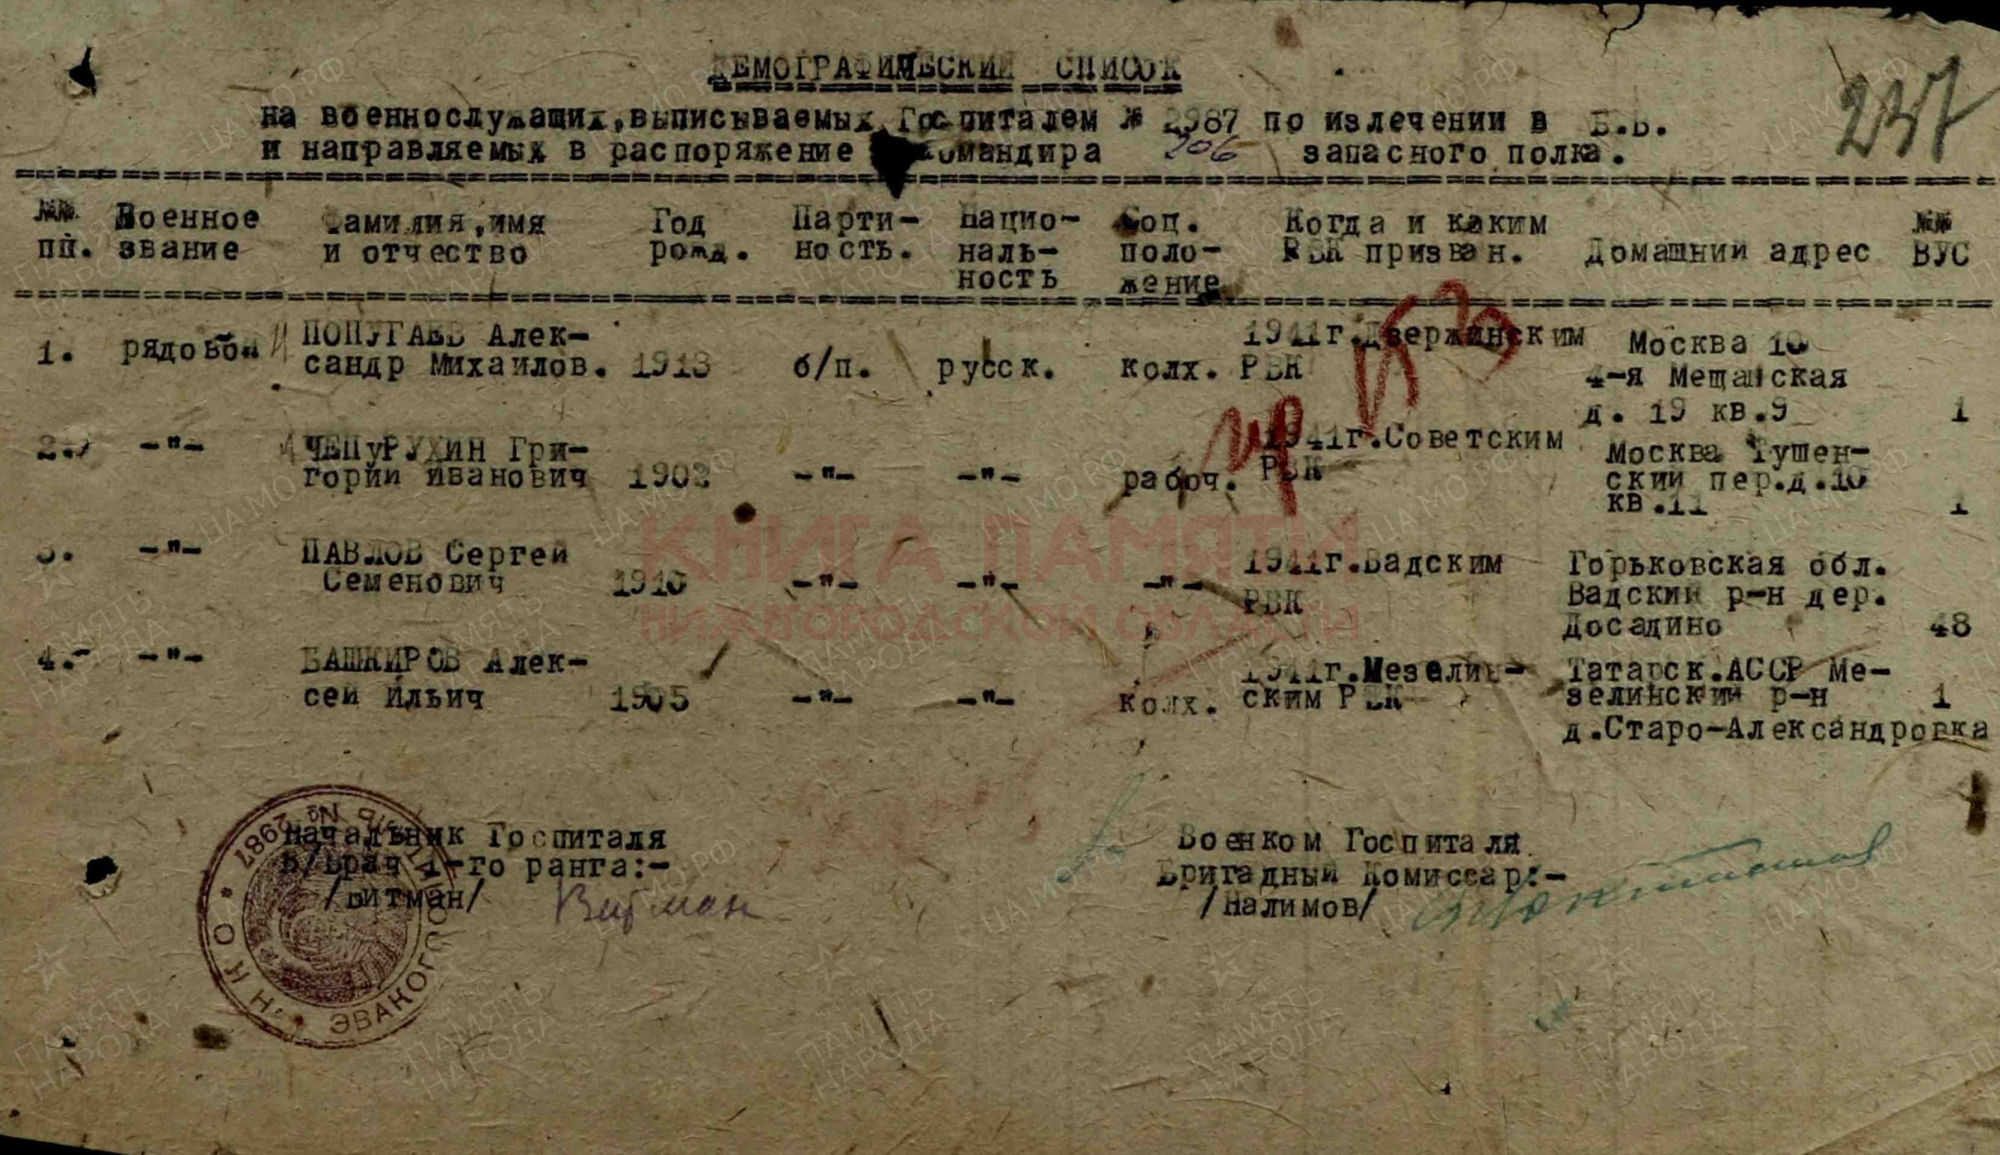 ДЕМОГРАФИЧЕСКИЙ СПИСОК
237
на военнослужащих, выписываемых Госпиталем № 2987 по излечении в Б.Б.
и направляемых в распоряжение командира 206 запасного полка.
№№ пп. Военное звание Фамилия, имя и отчество Год рожд. Парти-ность. Нацио-наль-ность Соц. поло-жение Когда и каким РВК призван. Домашний адрес №№ ВУС
1. рядовой ПОПУГАЕВ Алек-
сандр Михайлов. 1913 б/п. русск. колх. 1941г.Дзержинским РВК
Москва 10
4-я Мещанская
д. 19 кв.9 1
2. -"- ЧЕПуРУХИН Гри-
горий Иванович 1902 -"- -"- рабоч. 1941г.Советским РВК
Москва Тушен-
ский пер.д.10
кв.11 1
3. -"- ПАВЛОВ Сергей
Семенович 1910 -"- -"- -"- 1941г.Вадским РВК
Горьковская обл.
Вадский р-н дер.
Досадино 48
4. -"- БАШКИРОВ Алек-
сей Ильич 1905 -"- -"- колх. 1941г.Мезелин-
ским РВК
Татарск.АССР Ме-
зелинский р-н 1
д.Старо-Александровка
Начальник Госпиталя
В/Врач 1-го ранга:-
/Витман/ Витман
Военком Госпиталя
Бригадный Комиссар:-
/Налимов/
Н.К.О. * ЭВАКОГОСПИТАЛЬ № 2987 *
КНИГА ПАМЯТИ
НИЖЕГОРОДСКОЙ ОБЛАСТИ
ПАМЯТЬ НАРОДА
ЦА МО РФ